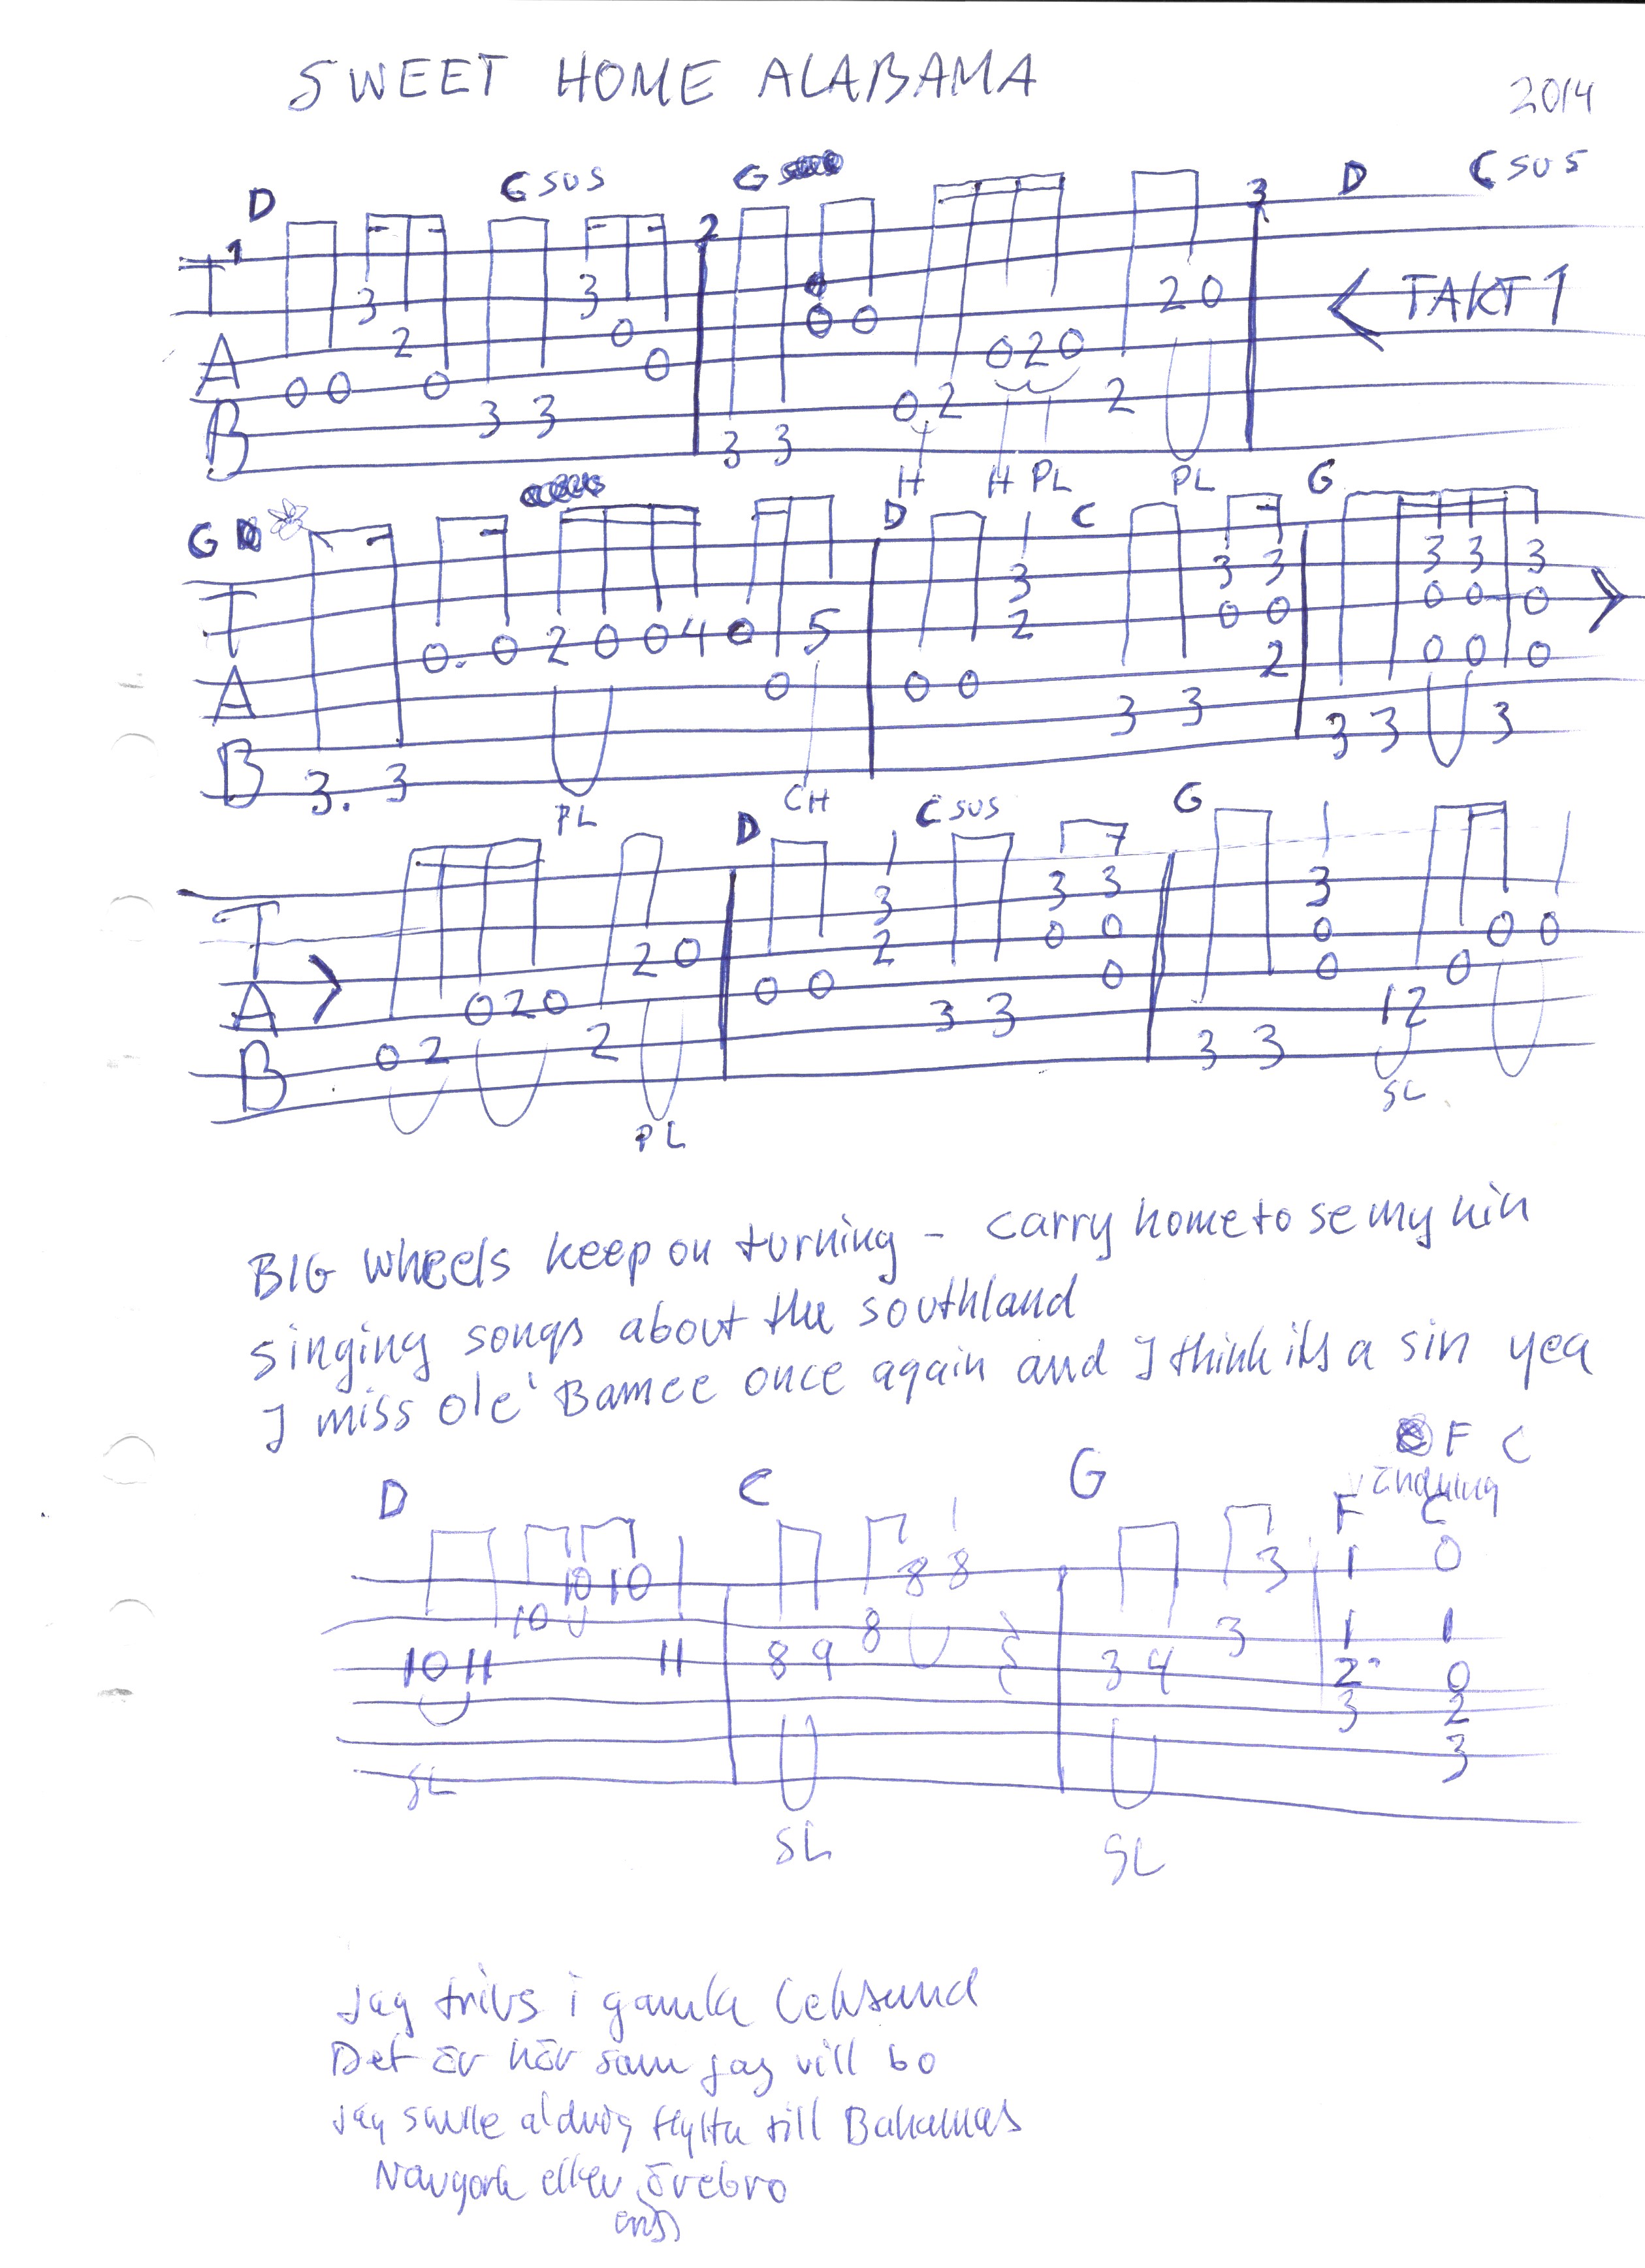 SWEET HOME ALABAMA
2014
D C SUS G D C SUS
1 2 3
T 3 3 0 0 2 0 < TAKT 1
A 2 0 0 0 0 2 0
0 0 0 3 3 0 2 2
B 3 3
H H PL PL
G D C G
T 3 3 3 3 3 3
0. 0 2 0 0 4 0 5 2 0 0 0 0 0
A 0 0 0 2 0 0 0
3 3 3 3 3
B 3. 3
PL CH
D C SUS G
T 3 3 3 3
2 0 2 0 0 0 0 0
A 0 2 0 0 0 0 0 0
0 2 2 3 3 1 2
B 3 3
PL SL
BIG wheels keep on turning - carry home to se my kin
singing songs about the southland
I miss ole' Bamee once again and I think its a sin yea
F C
vändning
D C G F C
10 10 8 8 3 1 0
10 8 3 1 1
10 11 11 8 9 3 4 2 0
3 2
3
SL
SL SL
Jag trivs i gamla
Det är här som jag vill bo
Jag skulle aldrig flytta till Bahamas
eller örebro